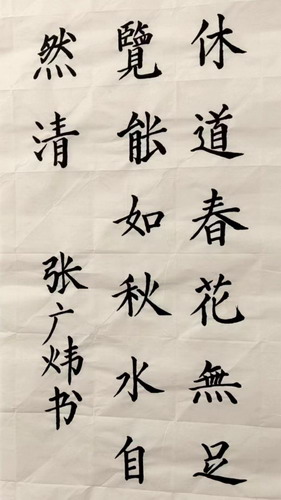 休道春花無足
覽能如秋水自
然清
张广炜书